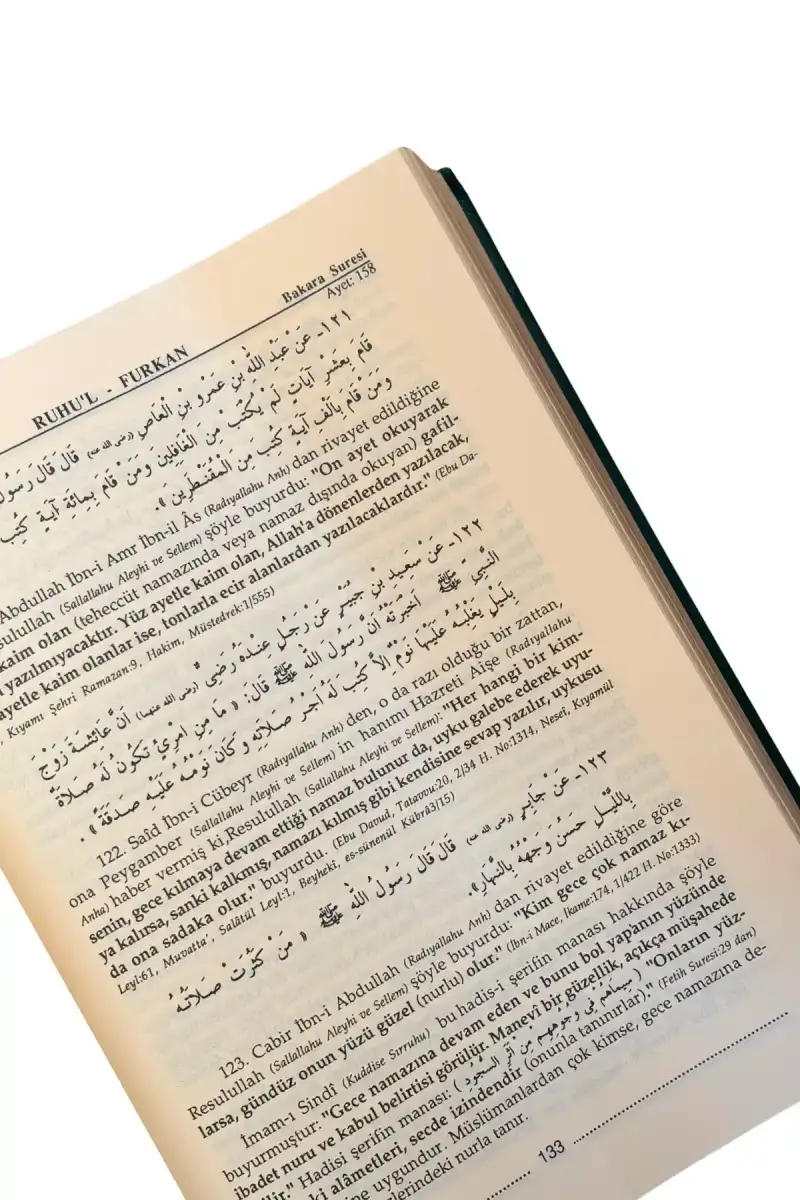 RUHU'L - FURKAN
Bakara Suresi
Ayet: 158
١٢١- عَنْ عَبْدِ اللّٰهِ بْنِ عَمْرِو بْنِ الْعَاصِ (رضى الله عنه) قَالَ قَالَ رَسُولُ
قَامَ بِعَشْرِ آيَاتٍ لَمْ يُكْتَبْ مِنَ الْغَافِلِينَ وَمَنْ قَامَ بِمِائَةِ آيَةٍ كُتِبَ
وَمَنْ قَامَ بِأَلْفِ آيَةٍ كُتِبَ مِنَ الْمُقَنْطَرِينَ ».
Abdullah İbn-i Amr İbn-il Âs (Radıyallahu Anh) dan rivayet edildiğine
sulullah (Sallallahu Aleyhi ve Sellem) şöyle buyurdu: "On ayet okuyarak
kaim olan (teheccüt namazında veya namaz dışında okuyan) gafil-
yazılmıyacaktır. Yüz ayetle kaim olan, Allah'a dönenlerden yazılacak,
ayetle kaim olanlar ise, tonlarla ecir alanlardan yazılacaklardır." (Ebu Da-
, Kıyamı Şehri Ramazan:9, Hakim, Müstedrek:1/555)
١٢٢- عَنْ سَعِيدِ بْنِ جُبَيْرٍ عَنْ رَجُلٍ عِنْدَهُ رَضِيٍّ (رضى الله عنها) أَنَّ عَائِشَةَ زَوْجَ
النَّبِيِّ ﷺ أَخْبَرَتْهُ أَنَّ رَسُولَ اللّٰهِ ﷺ قَالَ: « مَا مِنِ امْرِئٍ تَكُونُ لَهُ صَلَاةٌ
بِلَيْلٍ يَغْلِبُهُ عَلَيْهَا نَوْمٌ إِلَّا كُتِبَ لَهُ أَجْرُ صَلَاتِهِ وَ كَانَ نَوْمُهُ عَلَيْهِ صَدَقَةً ».
122. Saîd İbn-i Cübeyr (Radıyallahu Anh) den, o da razı olduğu bir zattan,
ona Peygamber (Sallallahu Aleyhi ve Sellem) in hanımı Hazreti Aişe (Radıyallahu
Anha) haber vermiş ki,Resulullah (Sallallahu Aleyhi ve Sellem): "Her hangi bir kim-
senin, gece kılmaya devam ettiği namaz bulunur da, uyku galebe ederek uyu-
ya kalırsa, sanki kalkmış, namazı kılmış gibi kendisine sevap yazılır, uykusu
da ona sadaka olur." buyurdu. (Ebu Davud, Tatavvu:20, 2/34 H. No:1314, Nesei, Kıyamül
Leyl:61, Muvatta', Salâtül Leyl:1, Beyhekî, es-sünenül Kübrâ3/15)
١٢٣- عَنْ جَابِرٍ (رضى الله عنه) قَالَ قَالَ رَسُولُ اللّٰهِ ﷺ « مَنْ كَثُرَتْ صَلَاتُهُ
بِاللَّيْلِ حَسُنَ وَجْهُهُ بِالنَّهَارِ».
123. Cabir İbn-i Abdullah (Radıyallahu Anh) dan rivayet edildiğine göre
Resulullah (Sallallahu Aleyhi ve Sellem) şöyle buyurdu: "Kim gece çok namaz kı-
larsa, gündüz onun yüzü güzel (nurlu) olur." (İbn-i Mace, İkame:174, 1/422 H. No:1333)
İmam-ı Sindî (Kuddise Sırruhu) bu hadis-i şerifin manası hakkında şöyle
buyurmuştur: "Gece namazına devam eden ve bunu bol yapanın yüzünde
ibadet nuru ve kabul belirtisi görülür. Manevî bir güzellik, açıkça müşahede
ilir." Hadisi şerifin manası: ( سِيمَاهُمْ فِي وُجُوهِهِمْ مِنْ أَثَرِ السُّجُودِ ) "Onların yüz-
ki alâmetleri, secde izindendir (onunla tanınırlar)." (Fetih Suresi:29 dan)
ine uygundur. Müslümanlardan çok kimse, gece namazına de-
zlerindeki nurla tanır.
133